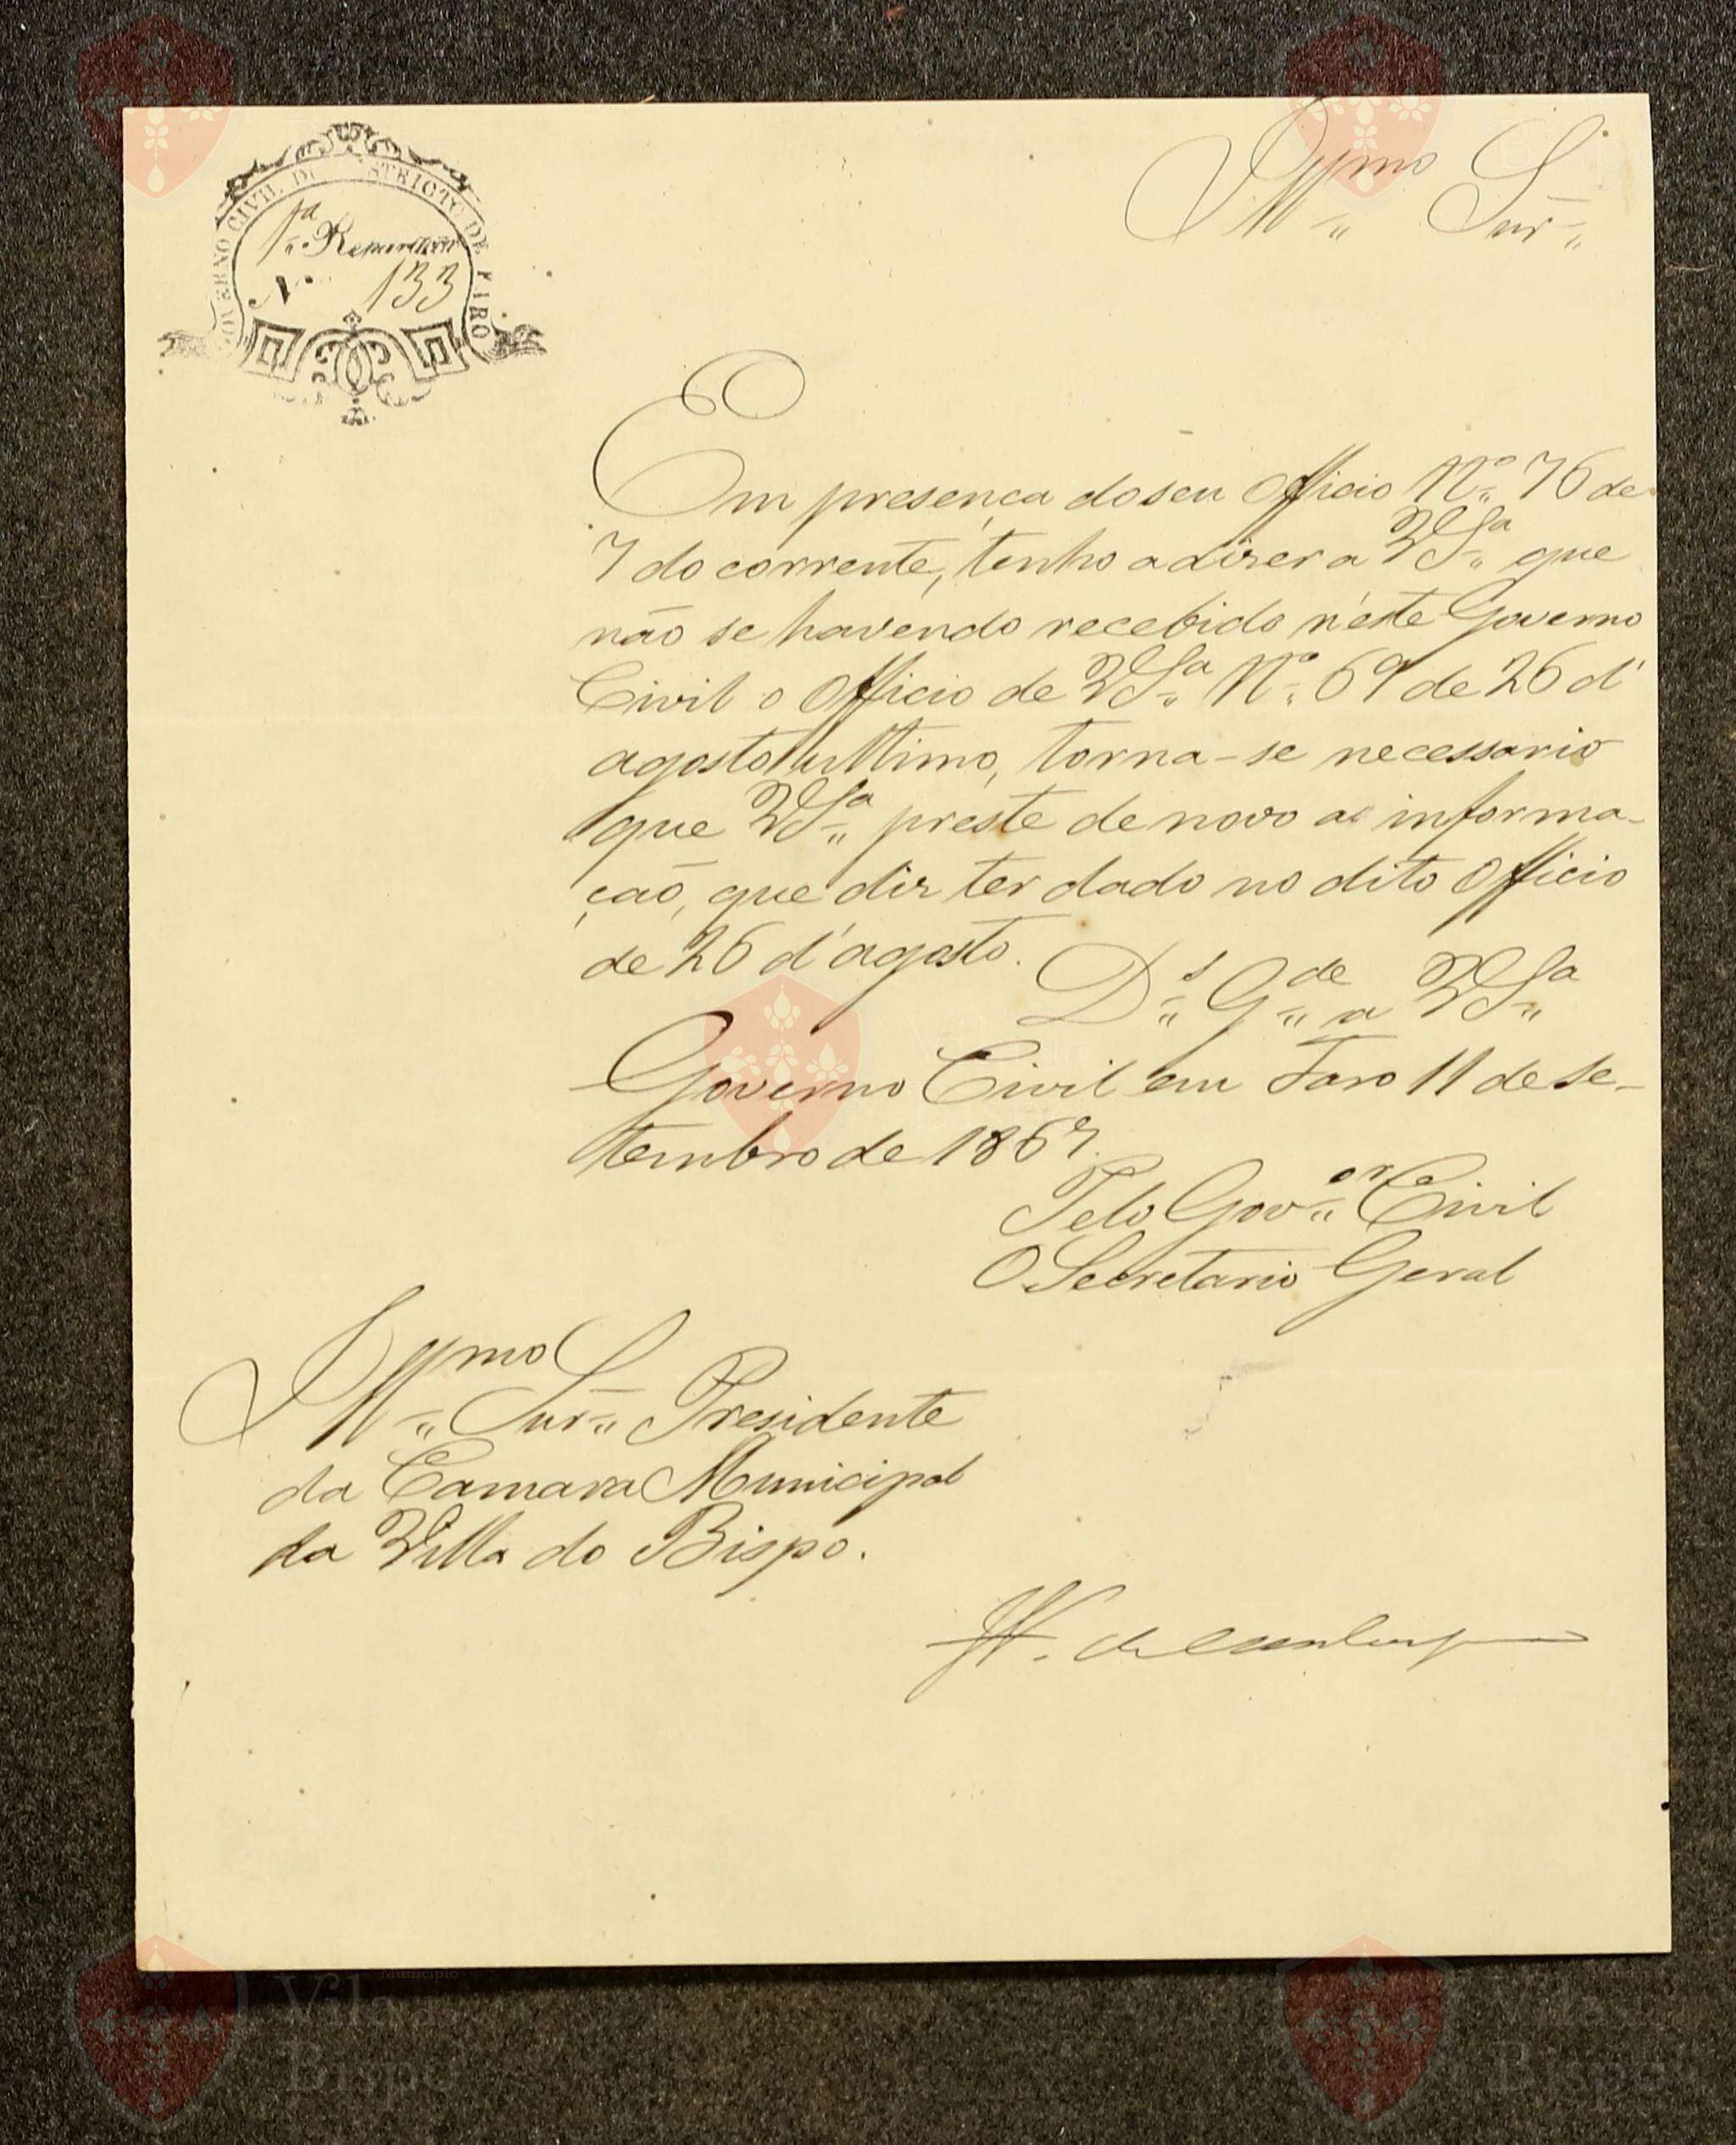 GOVERNO CIVIL DO DISTRICTO DE FARO
1.ª Repartição
N.º 133
Ill.mo Snr.
Em presença do seu Officio N.º 76 de
7 do corrente, tenho a dizer a VS.ª que
não se havendo recebido n'este Governo
Civil o Officio de VS.ª N.º 69 de 26 d'
agosto ultimo, torna-se necessario
que VS.ª preste de novo a informa-
ção, que diz ter dado no dito Officio
de 26 d'agosto.
D.s G.de a VS.ª
Governo Civil em Faro 11 de Se-
tembro de 1867.
Pelo Gov.or Civil
O Secretario Geral
Ill.mo Snr. Presidente
da Camara Municipal
da Villa do Bispo.
Município
Vila do
Bispo
Vila do
Bispo